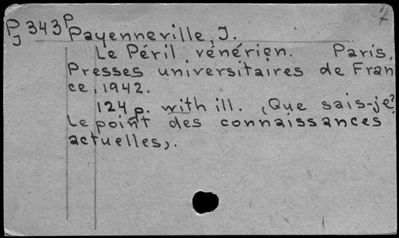 PJ 343P
Payenneville, J.
Le Péril vénérien. Paris,
Presses universitaires de Fran
ce, 1942.
124 p. with ill. (Que sais-je?
Le point des connaissances
actuelles).